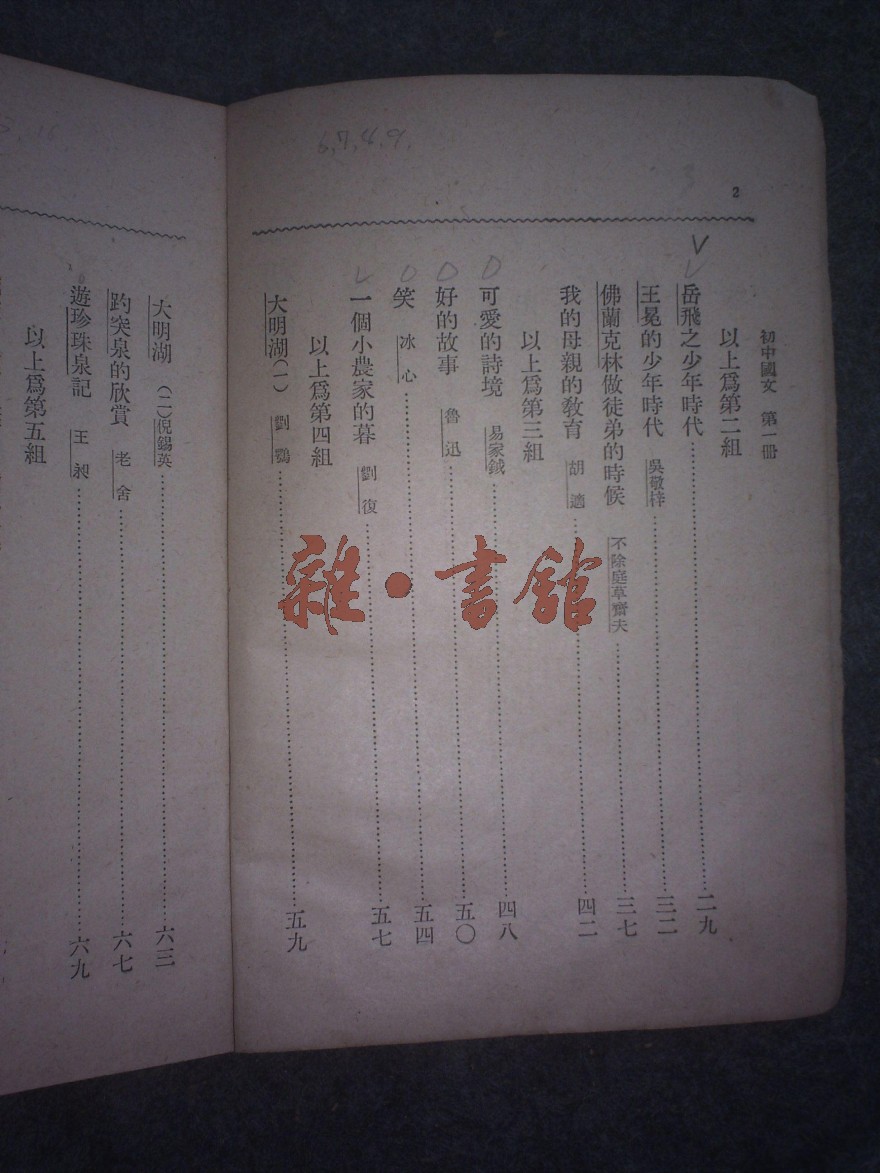 2
初中國文 第一冊
以上爲第二組
岳飛之少年時代……二九
王冕的少年時代 吳敬梓……三二
佛蘭克林做徒弟的時候 不除庭草齋夫……三七
我的母親的敎育 胡適……四二
以上爲第三組
可愛的詩境 易家鉞……四八
好的故事 魯迅……五〇
笑 冰心……五四
一個小農家的暮 劉復……五七
以上爲第四組
大明湖(一) 劉鶚……五九
大明湖(二) 倪錫英……六三
趵突泉的欣賞 老舍……六七
遊珍珠泉記 王昶……六九
以上爲第五組
雜·書館